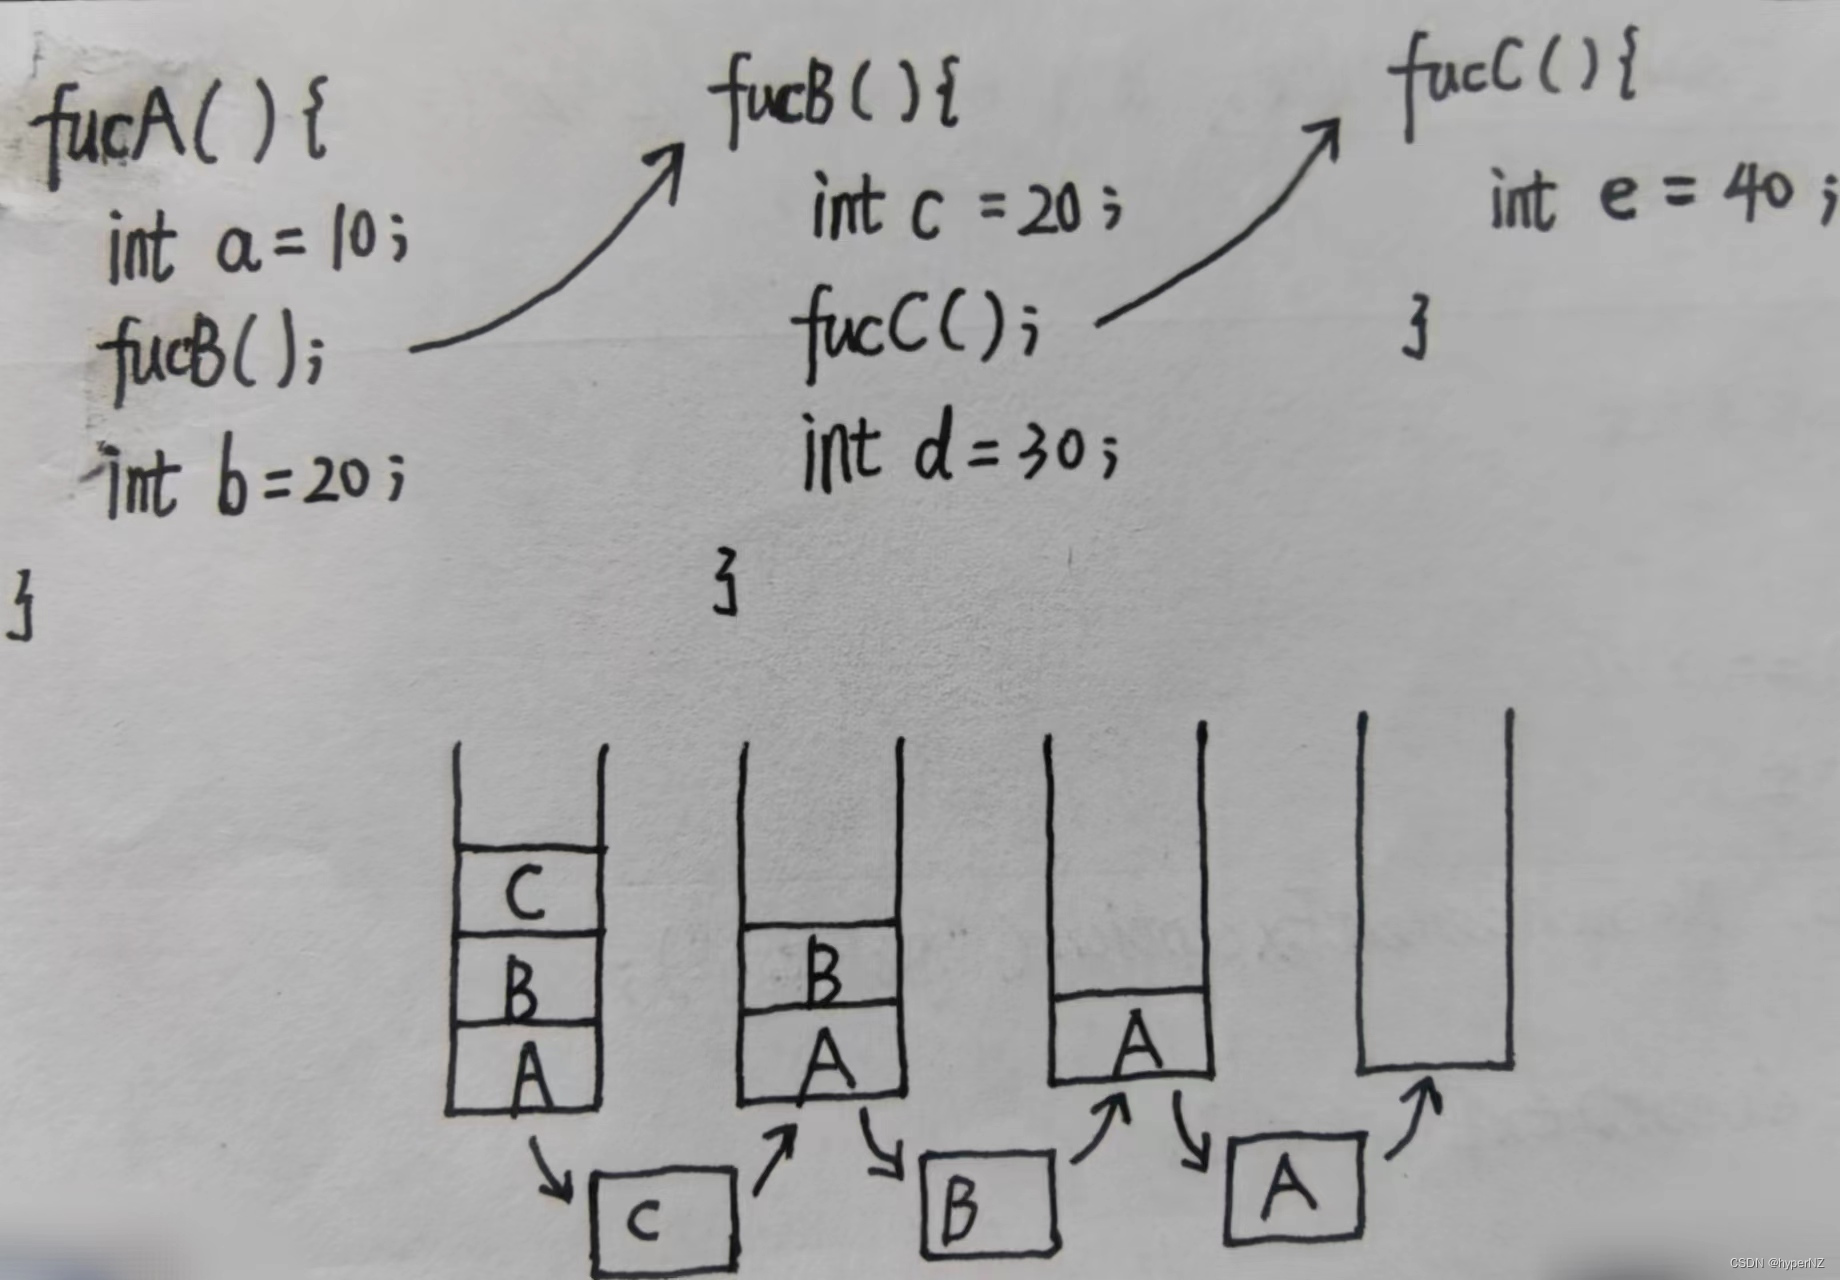 fucA(){
int a=10;
fucB();
int b=20;
}
fucB(){
int c =20;
fucC();
int d=30;
}
fucC(){
int e=40;
}
C
B
A
B
A
A
C
B
A
CSDN @hyperNZ